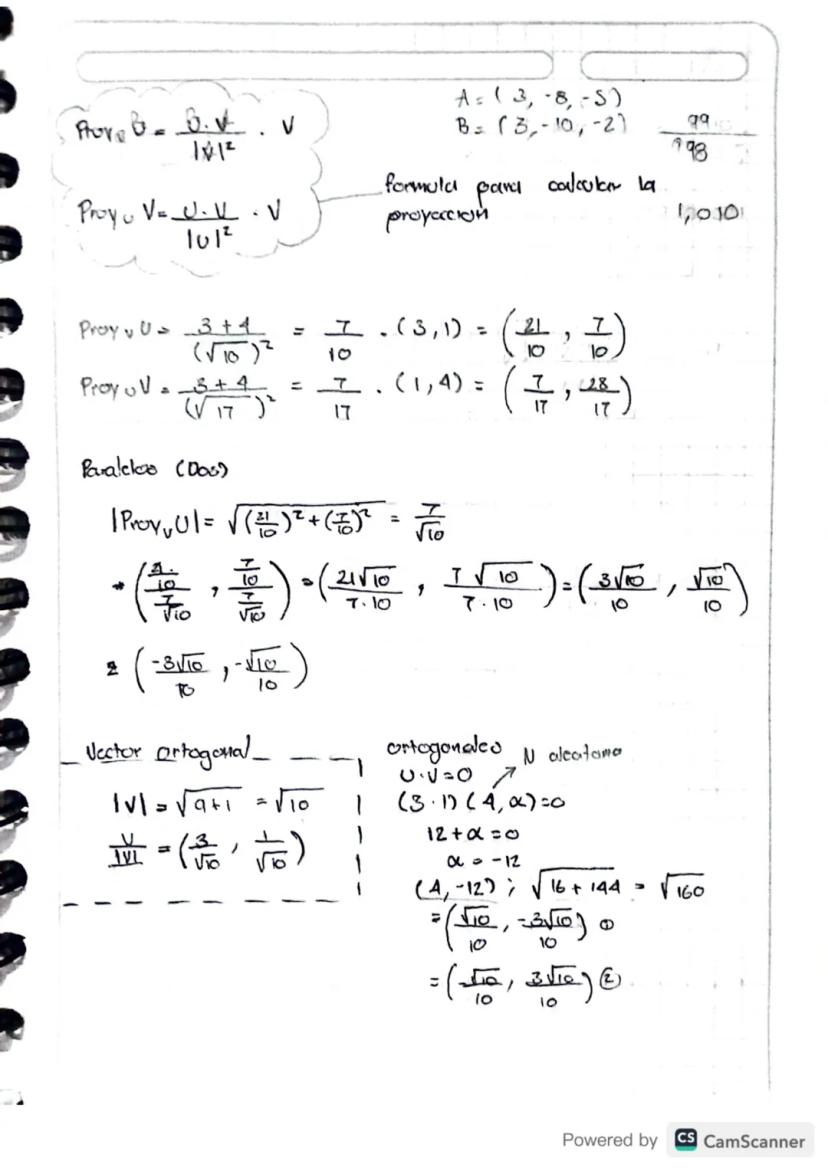 A = ( 3, -8, -5)
B = (3, -10, -2)
99
998
1,010
Proy B = U.V / |V|² . V
Proy U V = U.V / |U|² . V
formula para calcular la
proyección
Proy v U = 3+4 / (√10)² = 7/10 . (3,1) = (21/10, 7/10)
Proy U V = 3+4 / (√17)² = 7/17 . (1,4) = (7/17, 28/17)
Paralelos (Dos)
|Proy v U| = √(21/10)² + (7/10)² = 7/√10
7/10 / 7/√10) = (21√10 / 7.10, 7√10 / 7.10) = (3√10/10, √10/10)
2 (-3√10/10, -√10/10)
Vector ortogonal
|V| = √9+1 = √10
V/|V| = (3/√10, 1/√10)
ortogonales N aleatorio
U.V=0
(3.1) (4, α)=0
12+α=0
α = -12
(4,-12); √16+144 = √160
=(√10/10, -3√10/10) ①
=(√10/10, 3√10/10) ②
Powered by CS CamScanner